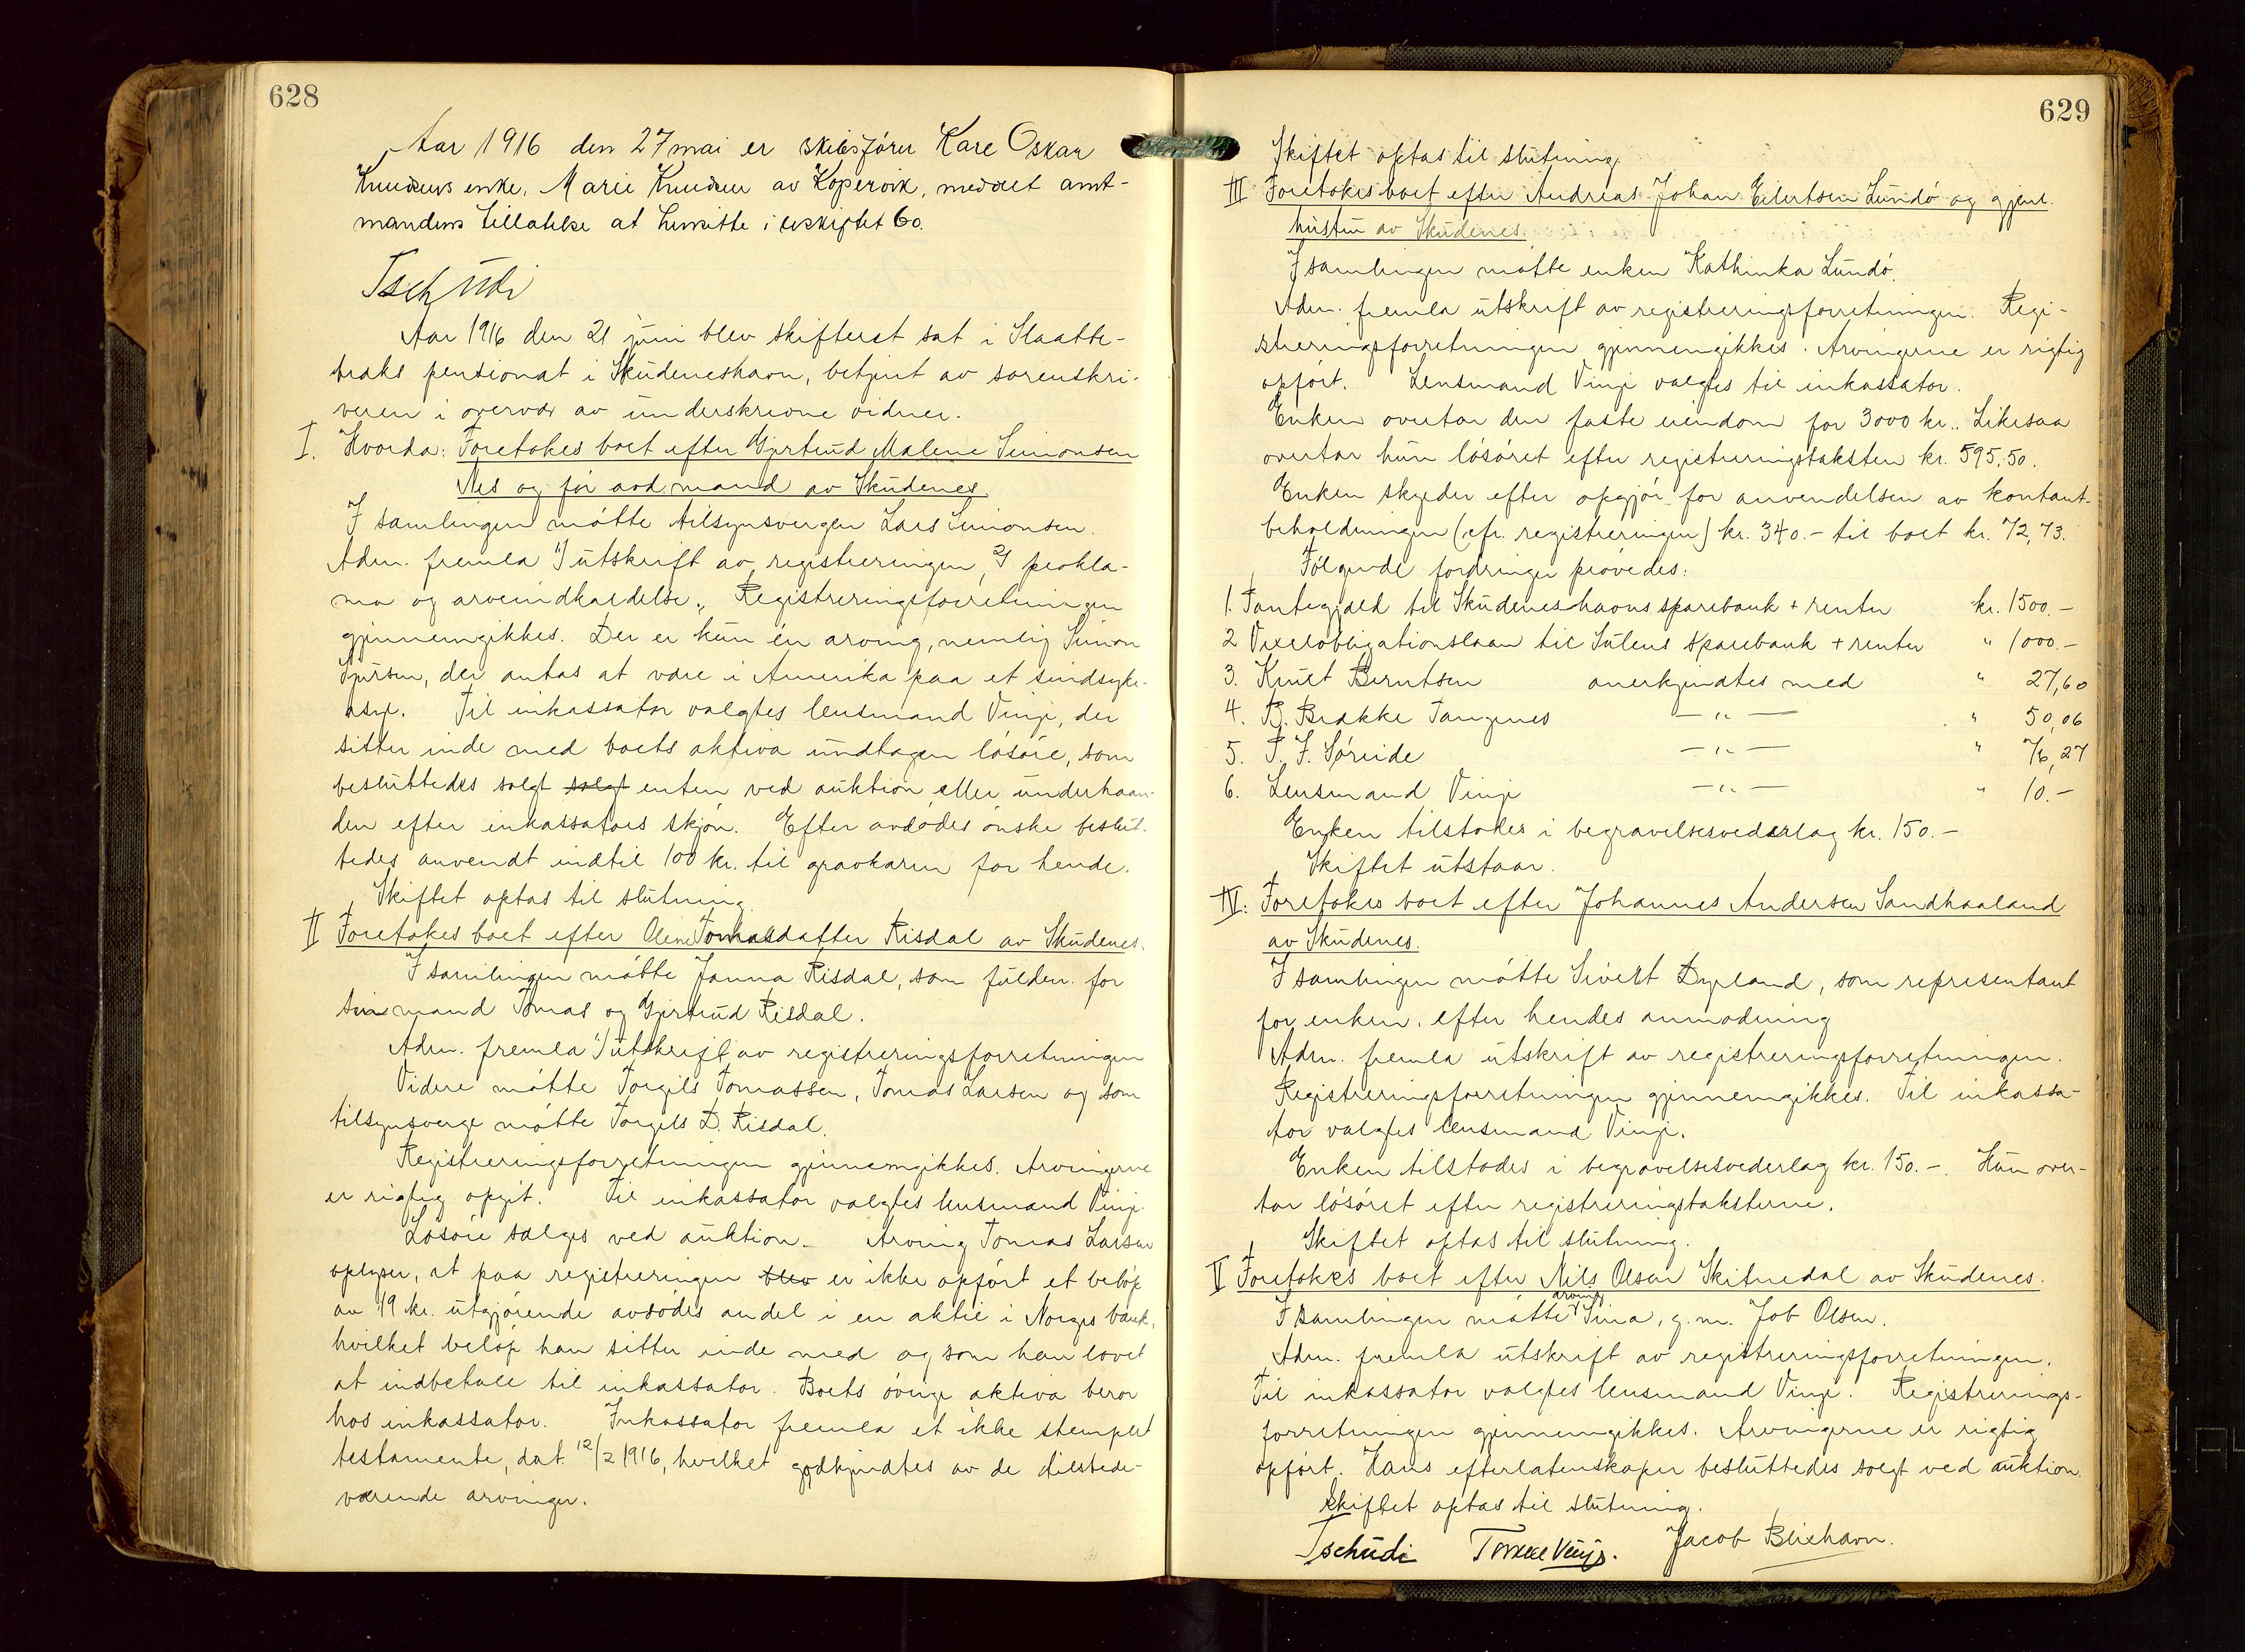 628
Aar 1916 den 27 mai er skibsfører Kare Oskar
Knudsens enke, Marie Knudsen av Kopervik, meddelt amt-
mandens tillatelse at hensitte i uskiftet bo.
Tschudi
Aar 1916 den 21 juni blev skifteret sat i Slaatte-
braks pensionat i Skudeneshavn, betjent av sorenskri-
veren i overvær av underskrevne vidner.
I. Hvorda: Foretokes boet efter Gjertrud Malene Simonsen
Nes og før avd. mand av Skudenes.
I samlingen møtte tilsynsvergen Lars Simonsen.
Adm. fremla 1) utskrift av registreringen, 2) prokla-
ma og arveindkaldelse. Registreringsforretningen
gjennemgikkes. Der er kun én arving, nemlig Simon
Sjursen, der antas at være i Amerika paa et sindsyke-
asyl. Til inkassator valgtes lensmand Vinje, der
sitter inde med boets aktiva undtagen løsøre, som
besluttedes solgt solgt enten ved auktion eller underhaan-
den efter inkassators skjøn. Efter avdødes ønske beslut-
tedes anvendt indtil 100 kr. til gravkarm for hende.
Skiftet optas til slutning.
II Foretokes boet efter Olene Tomasdatter Risdal av Skudenes.
I samlingen møtte Janna Risdal, som fuldm. for
sin mand Tomas og Gjertrud Risdal.
Adm. fremla 1) utskrift av registreringsforretningen
Videre møtte Torgils Tomassen, Tomas Larsen og som
tilsynsverge møtte Torgils D. Risdal.
Registreringsforretningen gjennemgikkes. Arvingerne
er rigtig opgit. Til inkassator valgtes lensmand Vinje.
Løsøre sælges ved auktion. Arving Tomas Larsen
oplyser, at paa registreringen blev er ikke opført et beløp
av 19 kr. utgjørende avdødes andel i en aktie i Norges bank,
hvilket beløp han sitter inde med og som han lovet
at indbetale til inkassator. Boets øvrige aktiva beror
hos inkassator. Inkassator fremla et ikke stemplet
testamente, dat. 12/2 1916, hvilket godkjendtes av de tilstede-
værende arvinger.
629
Skiftet optas til slutning.
III Foretokes boet efter Andreas Johan Eilertsen Lundø og gjenl.
hustru av Skudenes.
I samlingen møtte enken Kathinka Lundø.
Adm. fremla utskrift av registreringsforretningen. Regi-
streringsforretningen gjennemgikkes. Arvingerne er rigtig
opført. Lensmand Vinje valgtes til inkassator.
Enken overtar den faste eiendom for 3000 kr.. Likesaa
overtar hun løsøret efter registreringstaksten kr. 595,50.
Enken skylder efter opgjør for anvendelsen av kontant-
beholdningen (cfr. registreringen) kr. 340.- til boet kr. 72,73.
Følgende fordringer prøvedes:
1. Pantegjæld til Skudeneshavns sparebank + renter kr. 1500.-
2 Vexelobligationslaan til Sulens sparebank + renter " 1000.-
3. Knut Berntsen anerkjendtes med " 27,60
4. B. Brække Tangenes — " — " 50,06
5. T. F. Søreide — " — " 76,27
6. Lensmand Vinje — " — " 10.-
Enken tilstodes i begravelsesvederlag kr. 150.-
Skiftet utstaar.
IV. Foretokes boet efter Johannes Andersen Sandhaaland
av Skudenes.
I samlingen møtte Sivert Dypland, som representant
for enken, efter hendes anmodning
Adm. fremla utskrift av registreringsforretningen.
Registreringsforretningen gjennemgikkes. Til inkassa-
tor valgtes lensmand Vinje.
Enken tilstodes i begravelsesvederlag kr. 150.-. Hun over-
tar løsøret efter registreringstaksterne.
Skiftet optas til slutning.
V Foretokes boet efter Nils Olsen Skitnedal av Skudenes.
I samlingen møtte arving Sina, g.m. Job Olsen.
Adm. fremla utskrift av registreringsforretningen.
Til inkassator valgtes lensmand Vinje. Registrerings-
forretningen gjennemgikkes. Arvingerne er rigtig
opført. Hans efterlatenskaper besluttedes solgt ved auktion.
Skiftet optas til slutning.
Tschudi Torkel Vinje. Jacob Blixhavn.